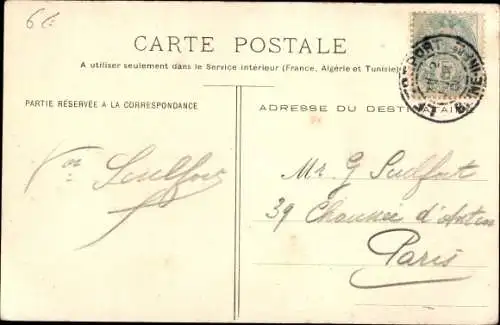 6€
CARTE POSTALE
A utiliser seulement dans le Service intérieur (France, Algérie et Tunisie)
PARTIE RÉSERVÉE A LA CORRESPONDANCE
ADRESSE DU DESTINATAIRE
Mr. G
39 Chaussée d'Antin
Paris